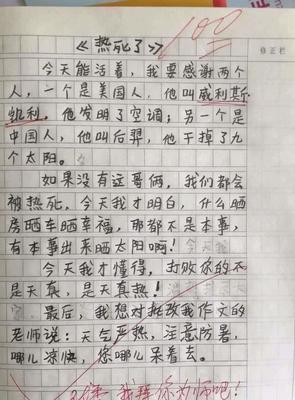 100
修正栏
《热死了》
今天能活着，我要感谢两个
人，一个是美国人，他叫威利斯
凯利，他发明了空调；另一个是
中国人，他叫后羿，他干掉了九
个太阳。
如果没有这哥俩，我们都会
被热死，今天我才明白，什么晒
房晒车晒幸福，那都不是本事，
有本事出来晒太阳啊！
今天我才懂得，打败你的不
是天真，是天真热！
最后，我想对批改我作文的
老师说：天气严热，注意防暑，
哪儿凉快，您哪儿呆着去。
我拜你为师吧！